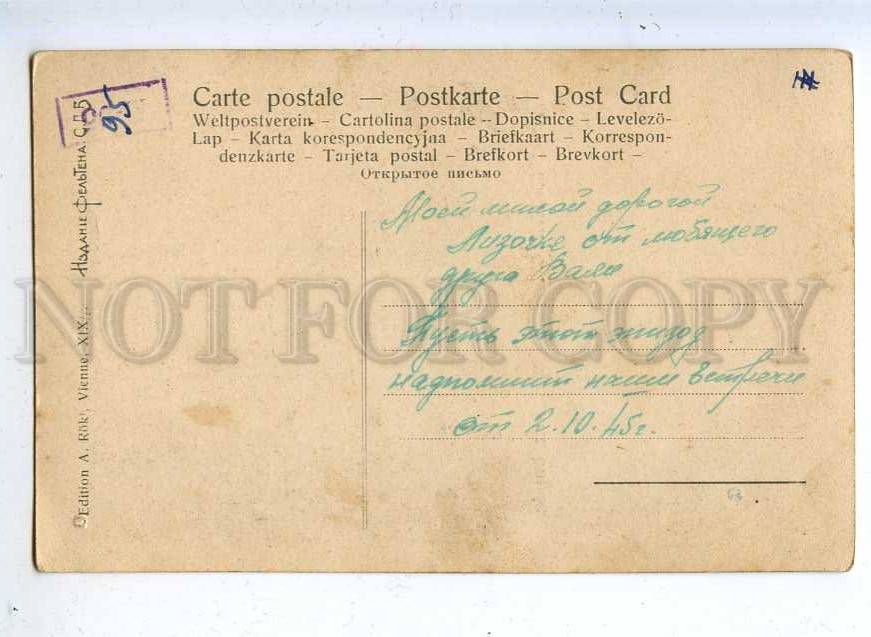 Carte postale — Postkarte — Post Card
Weltpostverein – Cartolina postale – Dopisnice – Levelező-
Lap – Karta korespondencyjna – Briefkaart – Korrespon-
denzkarte – Tarjeta postal – Brefkort – Brevkort –
Открытое письмо
Моей милой дорогой
Лизочке от любящего
друга Вали
Пусть этот эпизод
надпомнит наши встречи
от 2.10.45г.
Edition A. Rökl, Vienne, XIX.
Изданіе Фельтена. С.П.Б
95
NOT FOR COPY